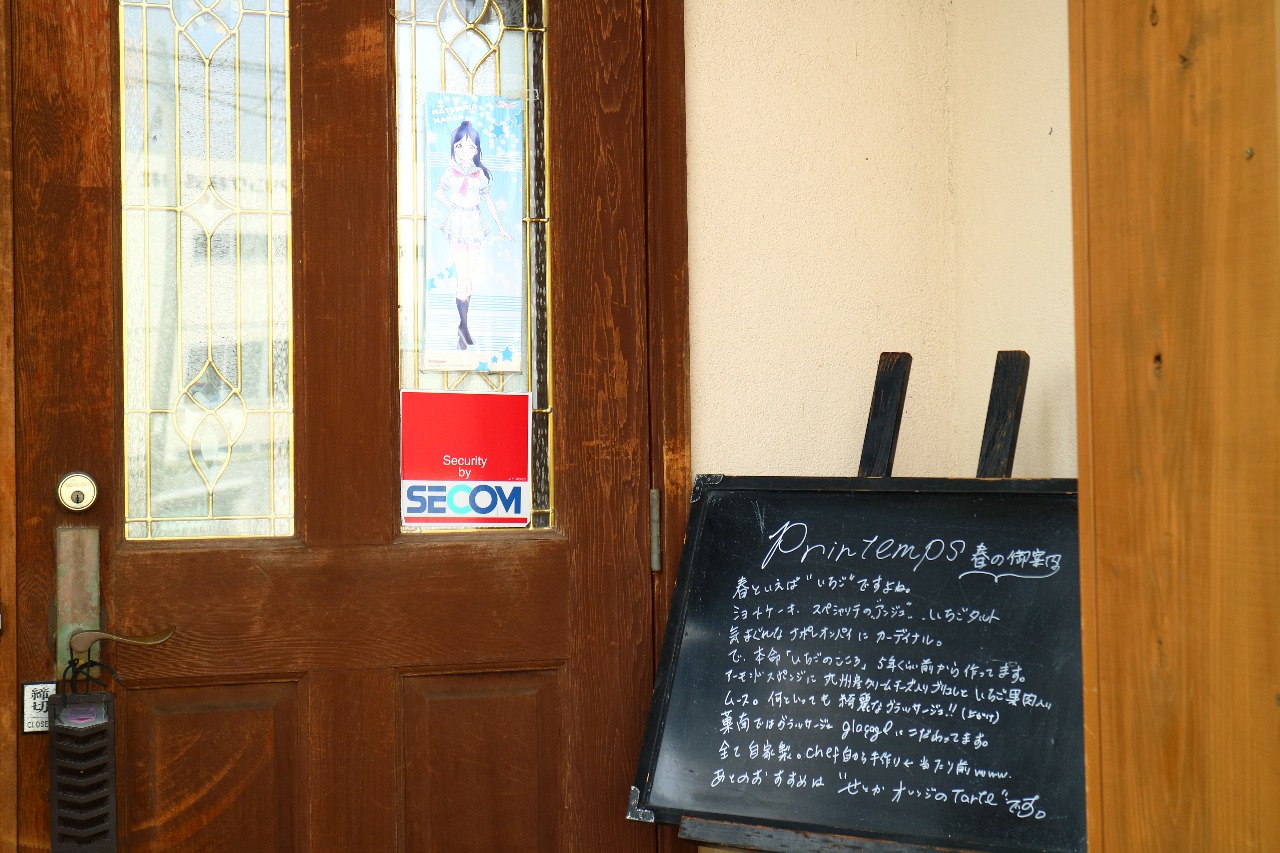 MATSUURA
KANAN
Security
by
SECOM
締切
CLOSE
Printemps 春の御案内
春といえば“いちご”ですよね。
ショートケーキ、スペシャリテのアンジュ、いちごタルト
気まぐれな ナポレオンパイに カーディナル。
で、本命「いちごのこころ」5年くらい前から作ってます。
アーモンドスポンジに 九州産クリームチーズ入り ブリュレと いちご果肉入り
ムース。何といっても 綺麗なグラッサージュ!!
菓南ではグラッサージュ glaçage にこだわってます。
全て自家製。chef自から手作り← 当たり前www.
あとのおすすめは “せとか オレンジのTarte”です。